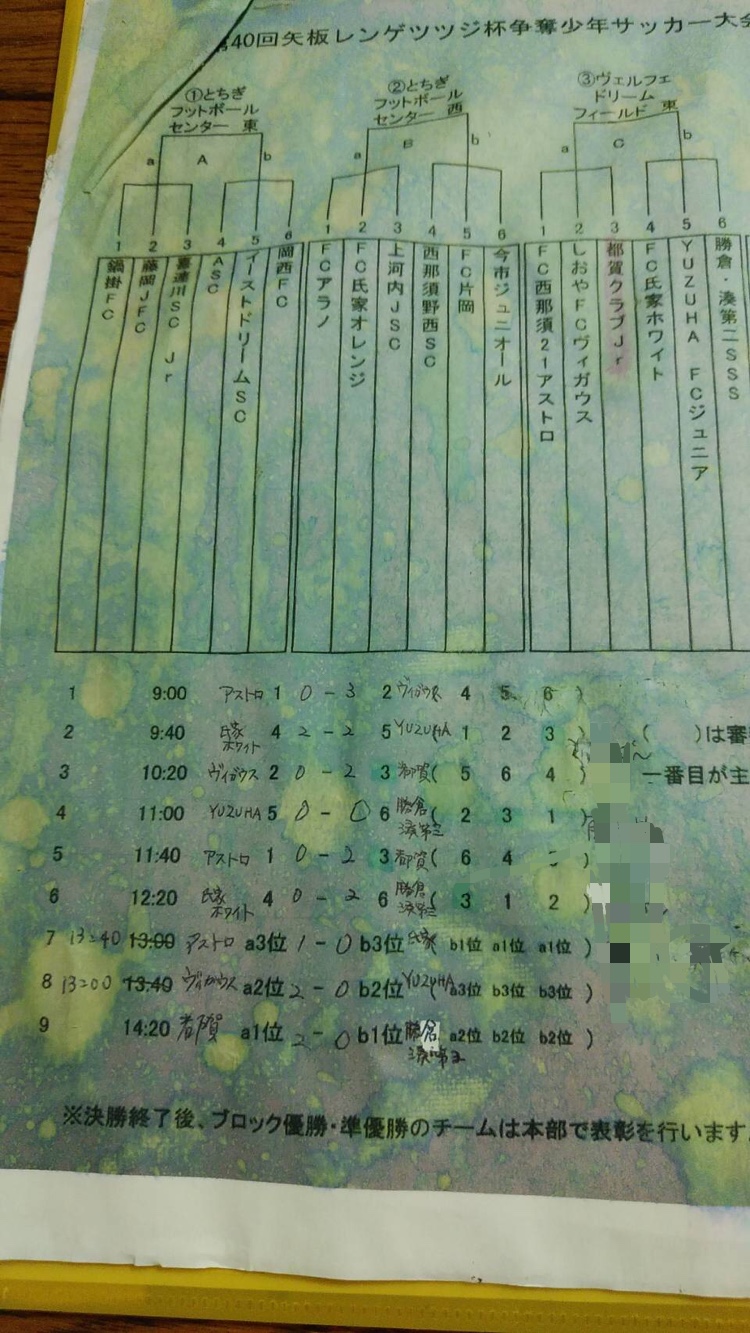 40回矢板レンゲツツジ杯争奪少年サッカー大会
①とちぎ
フットボール
センター 東
②とちぎ
フットボール
センター 西
③ヴェルフェ
ドリーム
フィールド 東
a A b
a B b
a C b
1 2 3 4 5 6 1 2 3 4 5 6 1 2 3 4 5 6
鍋掛FC
藤岡JFC
喜連川SC Jr
ASC
イーストドリームSC
岡西FC
FCアラノ
FC氏家オレンジ
上河内JSC
西那須野西SC
FC片岡
今市ジュニオール
FC西那須21アストロ
しおやFCヴィガウス
都賀クラブJr
FC氏家ホワイト
YUZUHA FCジュニア
勝倉・湊第二SSS
1 9:00 アストロ 1 0 - 3 2 ヴィガウス 4 5 6 )
2 9:40 氏家ホワイト 4 2 - 2 5 YUZUHA 1 2 3 ) ( )は審
3 10:20 ヴィガウス 2 0 - 2 3 都賀 ( 5 6 4 ) 一番目が主
4 11:00 YUZUHA 5 0 - 0 6 勝倉湊第二 ( 2 3 1 )
5 11:40 アストロ 1 0 - 2 3 都賀 ( 6 4 )
6 12:20 氏家ホワイト 4 0 - 2 6 勝倉湊第二 ( 3 1 2 )
7 13:40 13:00 アストロ a3位 1 - 0 b3位 氏家 b1位 a1位 a1位 )
8 13:00 13:40 ヴィガウス a2位 2 - 0 b2位 YUZUHA a3位 b3位 b3位 )
9 14:20 都賀 a1位 2 - 0 b1位 勝倉湊第二 a2位 b2位 b2位 )
※決勝終了後、ブロック優勝・準優勝のチームは本部で表彰を行います